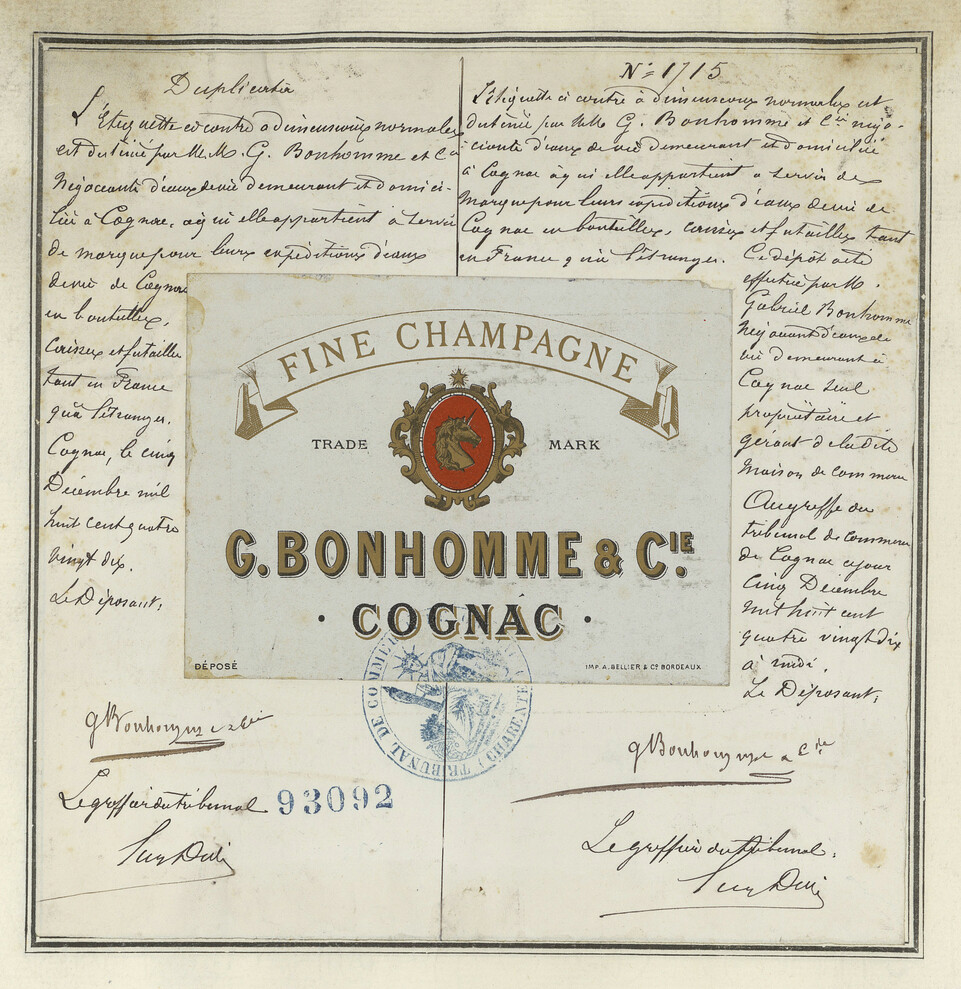 Duplicata
L'Etiquette ci contre a dimensions normales
est destinée par M.M. G. Bonhomme et Cie
Négociants d'eaux de vie demeurant et domici-
liés à Cognac, à qui elle appartient a servir
de marque pour leurs expéditions d'eaux
de vie de Cognac
en bouteilles,
caisses et futailles
tant en France
qu'à l'étranger.
Cognac, le cinq
Décembre mil
huit cent quatre
vingt dix.
Le Déposant,
G Bonhomme & Cie
Le greffier du tribunal
93092
No 1715
L'étiquette ci contre à dimensions normales est
destinée par MM G. Bonhomme et Cie négo-
ciants d'eaux de vie demeurant et domiciliés
à Cognac à qui elle appartient a servir de
marque pour leurs expéditions d'eaux de vie de
Cognac en bouteilles, caisses et futailles tant
en France qu'à l'étranger.
Ce dépôt a été
effectué par M.
Gabriel Bonhomme
Négociant d'eaux de
vie demeurant à
Cognac seul
propriétaire et
gérant de la dite
Maison de commerce
Au greffe du
tribunal de commerce
de Cognac ce jour
cinq Décembre
mil huit cent
quatre vingt dix
à midi.
Le Déposant,
G Bonhomme & Cie
Le greffier du tribunal,
FINE CHAMPAGNE
TRADE MARK
G. BONHOMME & CIE.
· COGNAC ·
DÉPOSÉ
IMP. A. BELLIER & Co BORDEAUX
TRIBUNAL DE COMMER
(CHARENTE)